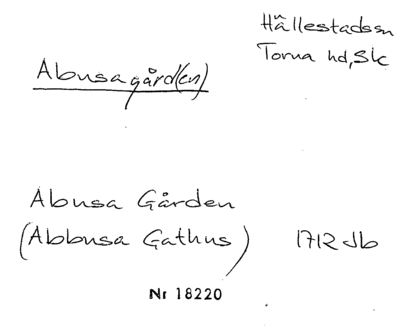 Hällestads sn
Torna hd, Sk
Abusagård(en)
Abusa Gården
(Abbusa Gathus) 1712 Jb
Nr 18220